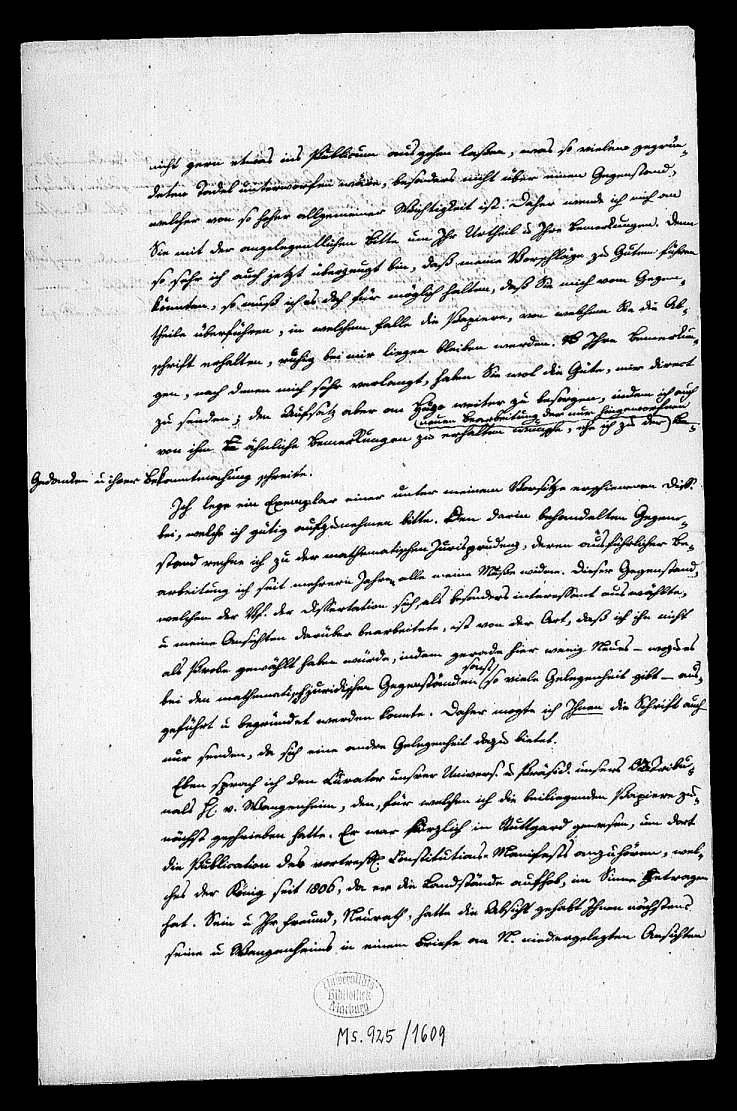 nicht gern etwas ins Publicum ausgehen laßen, was so vielem gegrün-
deten Tadel unterworfen wäre, besonders nicht über einen Gegenstand,
welcher von so hoher allgemeiner Wichtigkeit ist. Daher wende ich mich an
Sie mit der angelegentlichen Bitte um Ihr Urtheil u Ihre Bemerkungen. Denn
so sehr ich auch jetzt überzeugt bin, daß meine Vorschläge zu Gutem führen
könnten, so muß ich es doch für möglich halten, daß Sie mich vom Gegen-
theile überführen, in welchem Falle die Papiere, von welchen Sie die Ab-
schrift erhalten, ruhig bei mir liegen bleiben werden. Ihre Bemerkun-
gen, nach denen mich sehr verlangt, haben Sie wol die Güte, mir direct
zu senden; den Aufsatz aber an Hugo weiter zu besorgen, indem ich auch
von ihm ähnliche Bemerkungen zu erhalten wünsche, ehe ich zu der
neuen Bearbeitung der nur hingeworfenen
Gedanken u ihrer Bekanntmachung schreite.
Ich lege ein Exemplar einer unter meinem Vorsitze erschienenen Diss.
bei, welche ich gütig aufzunehmen bitte. Den darin behandelten Gegen-
stand rechne ich zu der mathematischen Jurisprudenz, deren ausführlicher Be-
arbeitung ich seit mehrern Jahren alle meine Muße widme. Dieser Gegenstand,
welchen der Vf. der Dissertation sich als besonders interessant auswählte,
u meine Ansichten darüber bearbeitete, ist von der Art, daß ich ihn nicht
als Probe gewählt haben würde, indem gerade hier wenig Neues – wozu es
bei den mathematischjuridischen Gegenständen sonst so viele Gelegenheit gibt – aus-
geführt u begründet werden konnte. Daher mogte ich Ihnen die Schrift auch
nur senden, da sich eine andre Gelegenheit dazu bietet.
Eben sprach ich den Curator unsrer Univers. u Präsid. unsers Obertribu-
nals H. v. Wangenheim, den, für welchen ich die beiliegenden Papiere zu-
nächst geschrieben hatte. Er war kürzlich in Stuttgard gewesen, um dort
die Publication des vortreffl. Constitutions-Manifests anzuhören, wel-
ches der König seit 1806, da er die Landstände aufhob, im Sinne getragen
hat. Sein u Ihr Freund, Neurath, hatte die Absicht gehabt Ihnen nächstens
seine u Wangenheims in einem Briefe an N. niedergelegten Ansichten
Universitäts
Bibliothek
Marburg
Ms. 925/1609